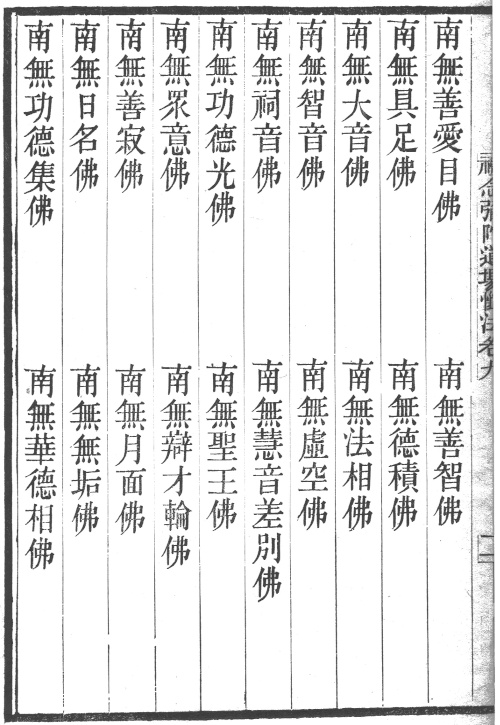 南無善愛目佛 南無善智佛
南無具足佛 南無德積佛
南無大音佛 南無法相佛
南無智音佛 南無虛空佛
南無祠音佛 南無慧音差別佛
南無功德光佛 南無聖王佛
南無眾意佛 南無辯才輪佛
南無善寂佛 南無月面佛
南無日名佛 南無無垢佛
南無功德集佛 南無華德相佛